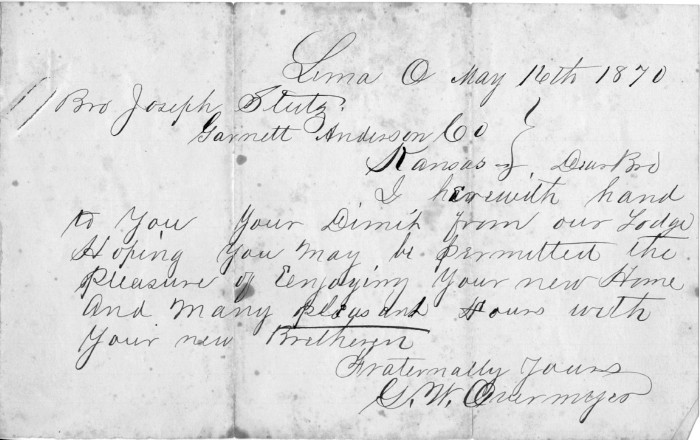 Lima O May 16th 1870
Bro Joseph Stutz.
Garnett Anderson Co
Kansas Dear Bro
I herewith hand
to You Your Dimit from our Lodge
Hoping You May be permitted the
pleasure of Eenjoying Your new Home
And Many pleasant Hours with
Your new Bretheren
Fraternally Yours
G. W. Overmyer